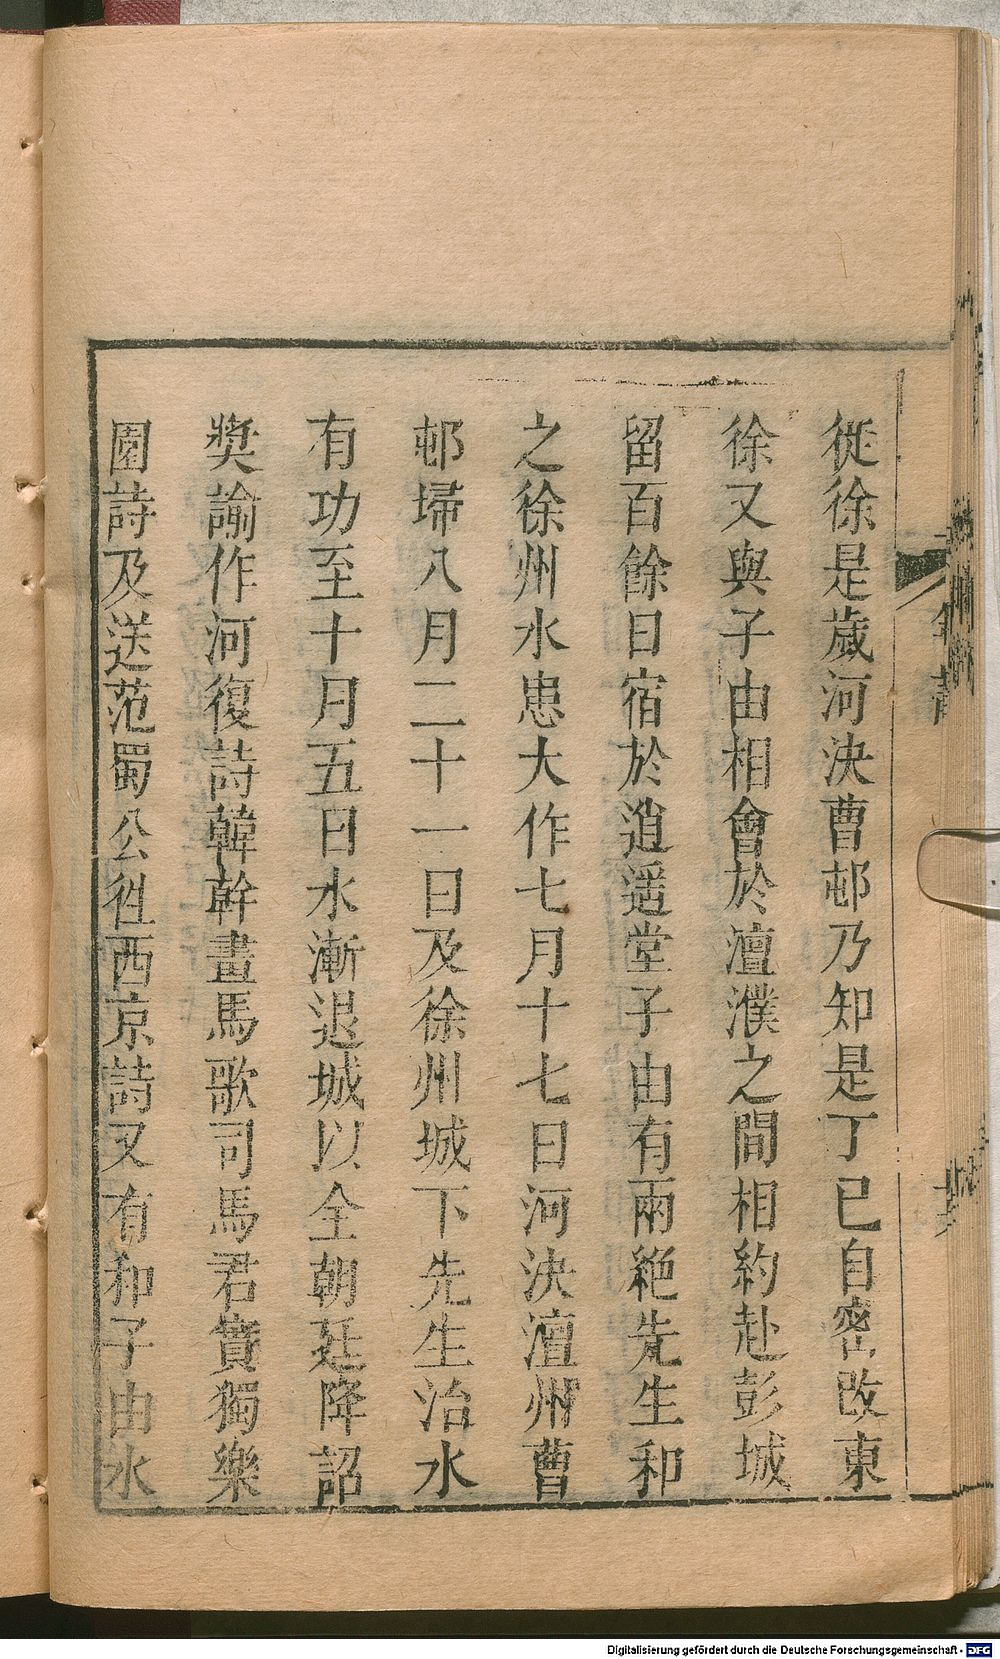 從徐是歲河決曹邨乃知是丁巳自密改東
徐又與子由相會於澶濮之間相約赴彭城
留百餘日宿於逍遥堂子由有兩絕先生和
之徐州水患大作七月十七日河決澶州曹
邨埽八月二十一日及徐州城下先生治水
有功至十月五日水漸退城以全朝廷降詔
奬諭作河復詩韓幹畫馬歌司馬君實獨樂
園詩及送范蜀公徃西京詩又有和子由水
Digitalisierung gefördert durch die Deutsche Forschungsgemeinschaft - DFG